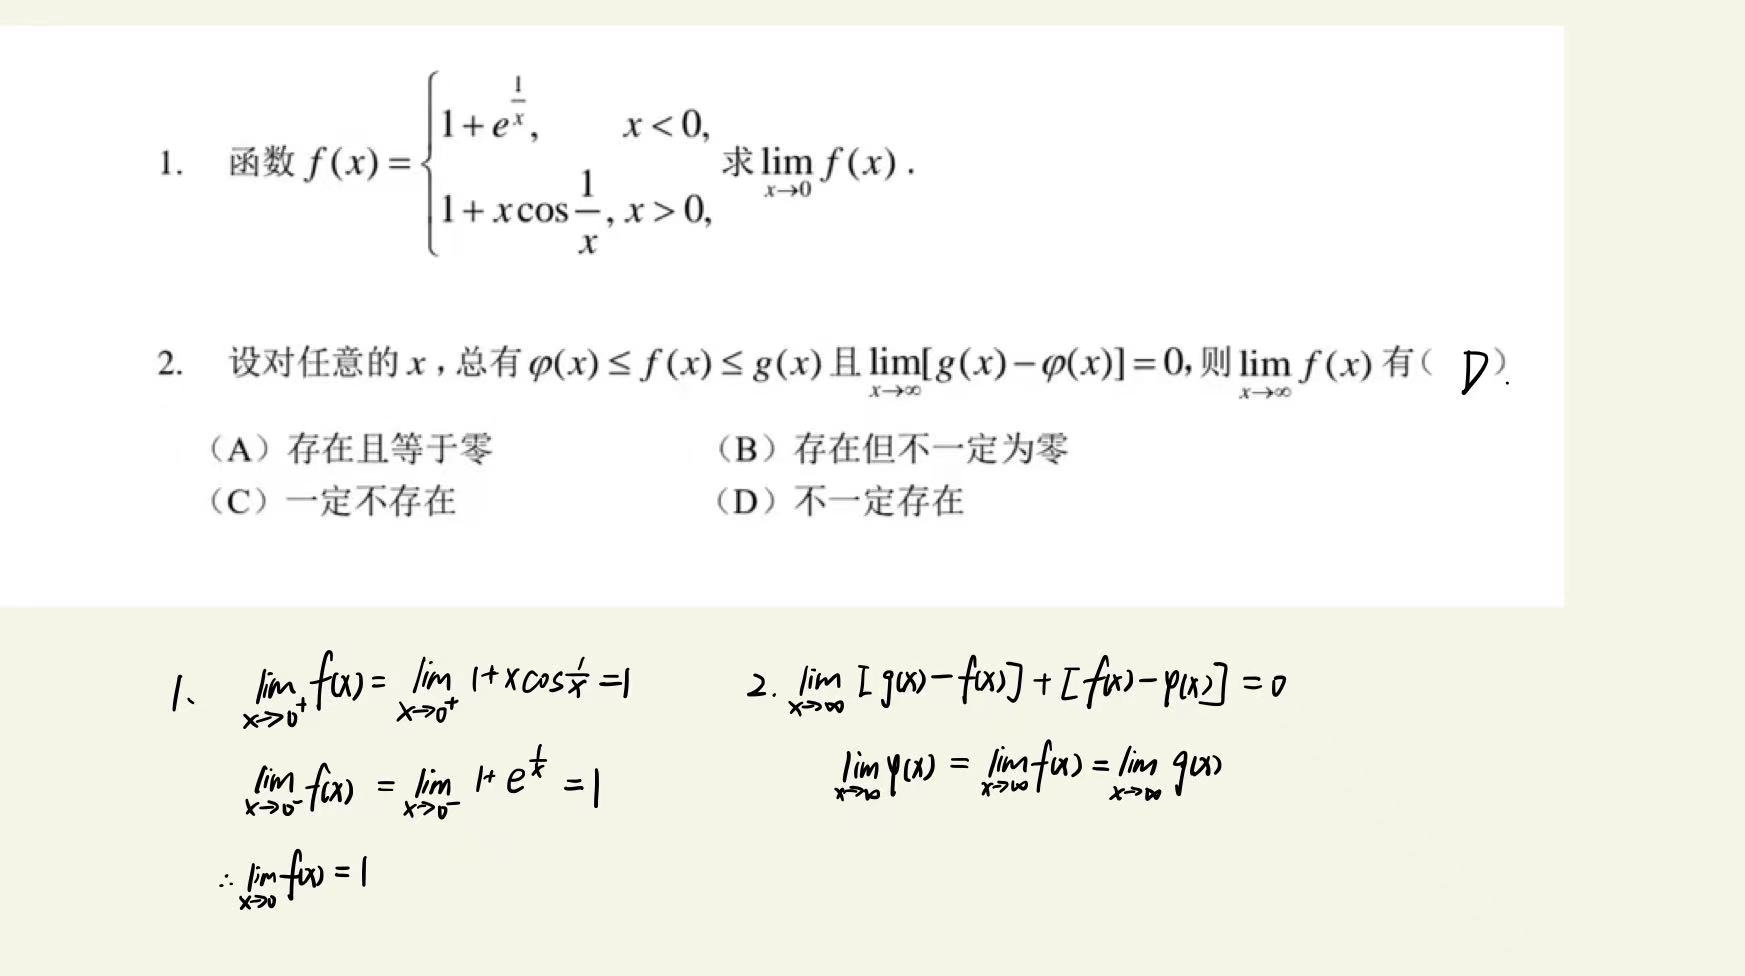 1. 函数 f(x) = { 1 + e^{1/x}, x < 0, 1 + x cos 1/x, x > 0, 求 lim_{x→0} f(x).
2. 设对任意的 x，总有 φ(x) ≤ f(x) ≤ g(x) 且 lim_{x→∞} [g(x) − φ(x)] = 0, 则 lim_{x→∞} f(x) 有（ D ）.
（A）存在且等于零 （B）存在但不一定为零
（C）一定不存在 （D）不一定存在
1、 lim_{x→0⁺} f(x) = lim_{x→0⁺} 1 + x cos 1/x = 1
lim_{x→0⁻} f(x) = lim_{x→0⁻} 1 + e^{1/x} = 1
∴ lim_{x→0} f(x) = 1
2. lim_{x→∞} [g(x) − f(x)] + [f(x) − φ(x)] = 0
lim_{x→∞} φ(x) = lim_{x→∞} f(x) = lim_{x→∞} g(x)